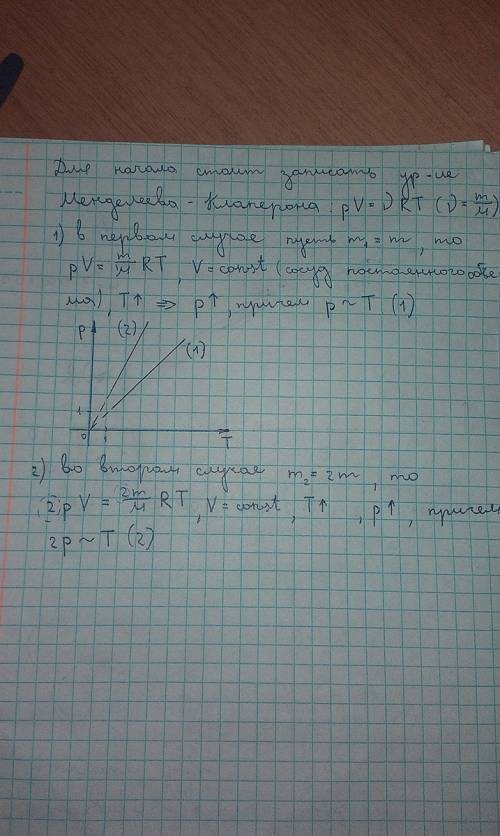 Для начала стоит записать ур-ие
Менделеева - Клаперона: pV = ν RT (ν = m/μ)
1) в первом случае пусть m₁ = m, то
pV = m/μ RT, V = const (сосуд постоянного объе-
ма), T↑ ⇒ p↑, причем p ~ T (1)
p (2)
(1)
1
0 1 T
2) во втором случае m₂ = 2m, то
(2)p V = 2m/μ RT, V = const, T↑, p↑, причем
2p ~ T (2)